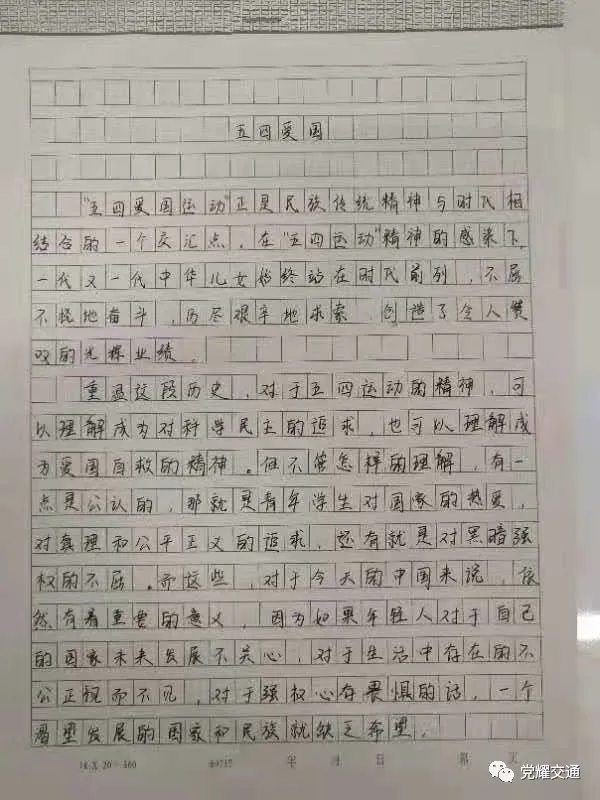 五四爱国
"五四爱国运动"正是民族传统精神与时代相
结合的一个交汇点，在"五四运动"精神的感染下，
一代又一代中华儿女始终站在时代前列，不屈
不挠地奋斗，历尽艰辛地求索，创造了令人赞
叹的光辉业绩。
重温这段历史，对于五四运动的精神，可
以理解成为对科学民主的追求，也可以理解成
为爱国自救的精神。但不管怎样的理解，有一
点是公认的，那就是青年学生对国家的热爱，
对真理和公平正义的追求，还有就是对黑暗强
权的不屈。而这些，对于今天的中国来说，依
然有着重要的意义，因为如果年轻人对于自己
的国家未来发展不关心，对于生活中存在的不
公正视而不见，对于强权心存畏惧的话，一个
渴望发展的国家和民族就缺乏希望。
20 = 400 年 月 日 第 页
党耀交通